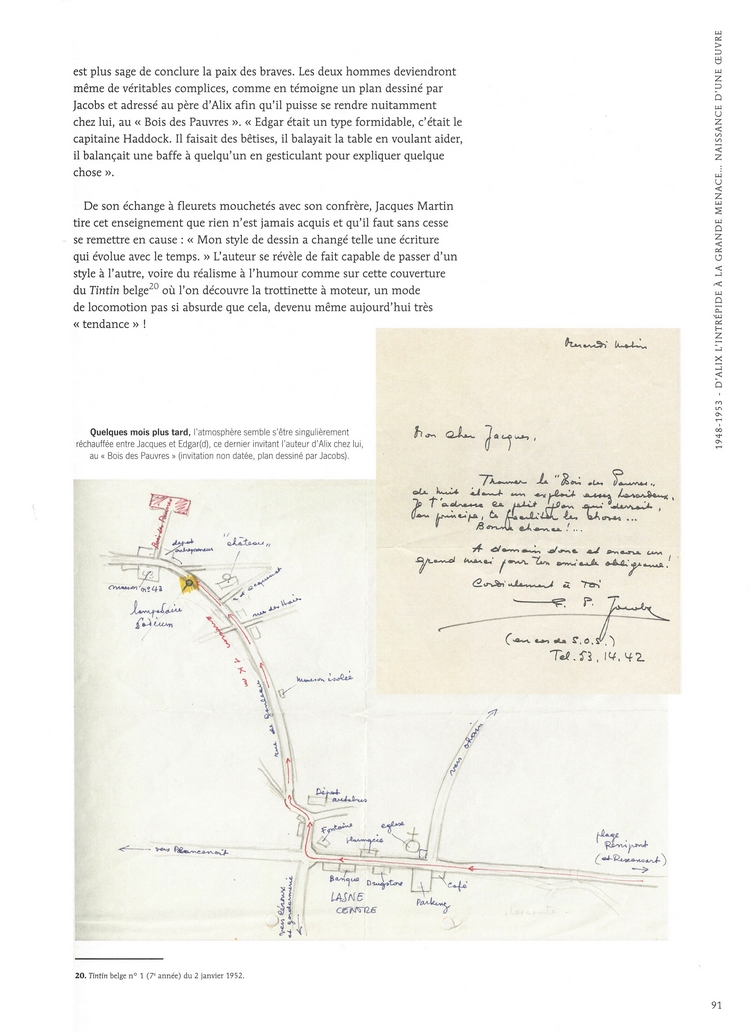 est plus sage de conclure la paix des braves. Les deux hommes deviendront
même de véritables complices, comme en témoigne un plan dessiné par
Jacobs et adressé au père d’Alix afin qu’il puisse se rendre nuitamment
chez lui, au « Bois des Pauvres ». « Edgar était un type formidable, c’était le
capitaine Haddock. Il faisait des bêtises, il balayait la table en voulant aider,
il balançait une baffe à quelqu’un en gesticulant pour expliquer quelque
chose ».
De son échange à fleurets mouchetés avec son confrère, Jacques Martin
tire cet enseignement que rien n’est jamais acquis et qu’il faut sans cesse
se remettre en cause : « Mon style de dessin a changé telle une écriture
qui évolue avec le temps. » L’auteur se révèle de fait capable de passer d’un
style à l’autre, voire du réalisme à l’humour comme sur cette couverture
du Tintin belge20 où l’on découvre la trottinette à moteur, un mode
de locomotion pas si absurde que cela, devenu même aujourd’hui très
« tendance » !
1948-1953 - D’ALIX L’INTRÉPIDE À LA GRANDE MENACE... NAISSANCE D’UNE ŒUVRE
Quelques mois plus tard, l’atmosphère semble s’être singulièrement
réchauffée entre Jacques et Edgar(d), ce dernier invitant l’auteur d’Alix chez lui,
au « Bois des Pauvres » (invitation non datée, plan dessiné par Jacobs).
Matin
Mon cher Jacques,
Trouver le "Bois des Pauvres"
de nuit étant un exploit assez hasardeux,
je t'adresse ce petit plan qui devrait,
en principe, te faciliter les choses...
Bonne chance !...
A demain donc et encore un
grand merci pour ton amicale obligeance !
Cordialement à Toi
E. P. Jacobs
(en cas de S.O.S.)
Tel. 53.14.42
Bois des Pauvres
dépôt
entrepreneur
"château"
maison n° 43
rue des Haies
lampadaire
Sodium
environ 1 Km
maison isolée
rue de
Dépôt
autobus
vers Ohain
Fontaine
église
plage
Renipont
(et Rixensart)
vers Plancenoit
Banque
Drugstore
Café
Parking
LASNE
CENTRE
et gendarmerie
20. Tintin belge n° 1 (7e année) du 2 janvier 1952.
91